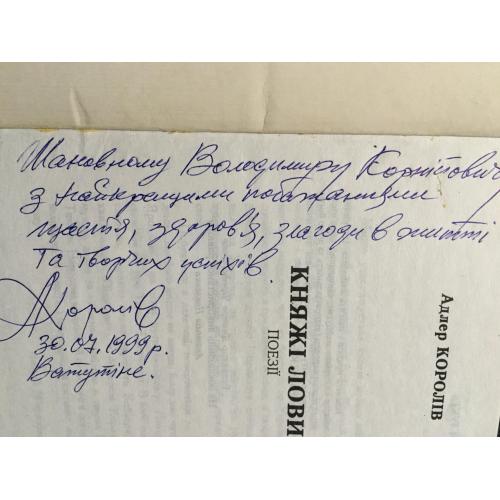 Шановному Володимиру Корнійович
з найкращими побажаннями
щастя, здоров'я, злагоди в житті
та творчих успіхів.
АКоролів
30.07.1999 р.
Ватутіне.
Адлер КОРОЛІВ
КНЯЖІ ЛОВИ
ПОЕЗІЇ